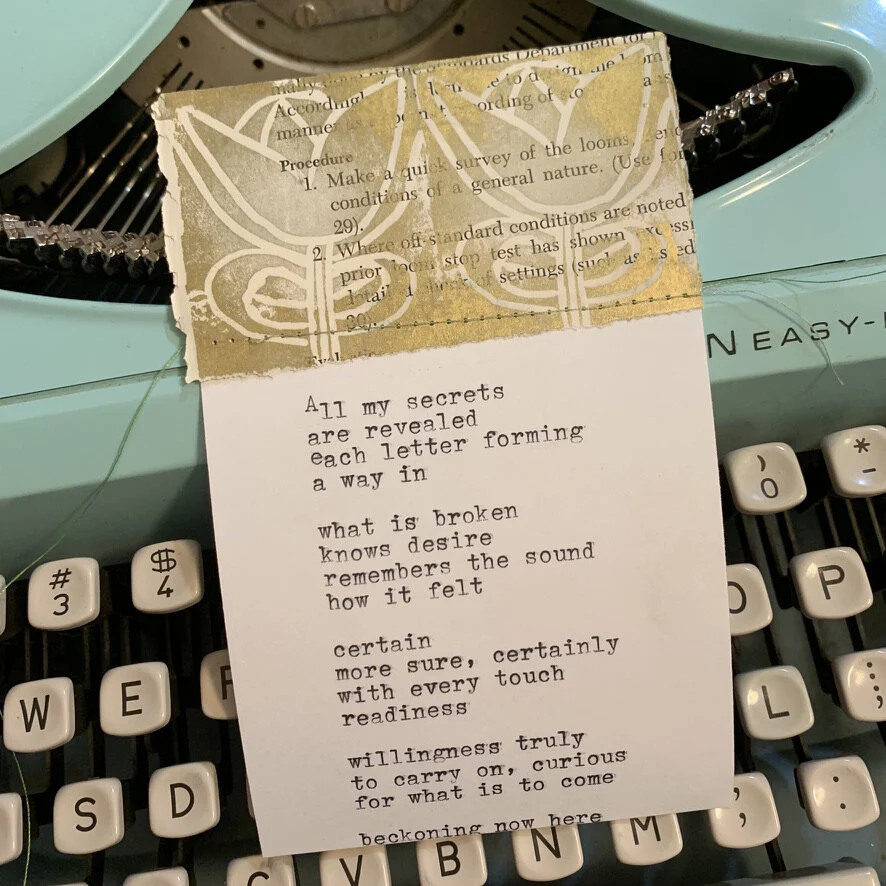 the Standards Department for
Accordingl
manne
Procedure
1. Make a quick survey of the looms,
conditions of a general nature. (Use for
29).
2. Where off-standard conditions are noted
prior loom stop test has shown
settings (such as
30).
All my secrets
are revealed
each letter forming
a way in
what is broken
knows desire
remembers the sound
how it felt
certain
more sure, certainly
with every touch
readiness
willingness truly
to carry on, curious
for what is to come
beckoning now here
NEASY-
) 0
* -
# 3
$ 4
O P
W E
L
: ;
S D
, .
C V B N M